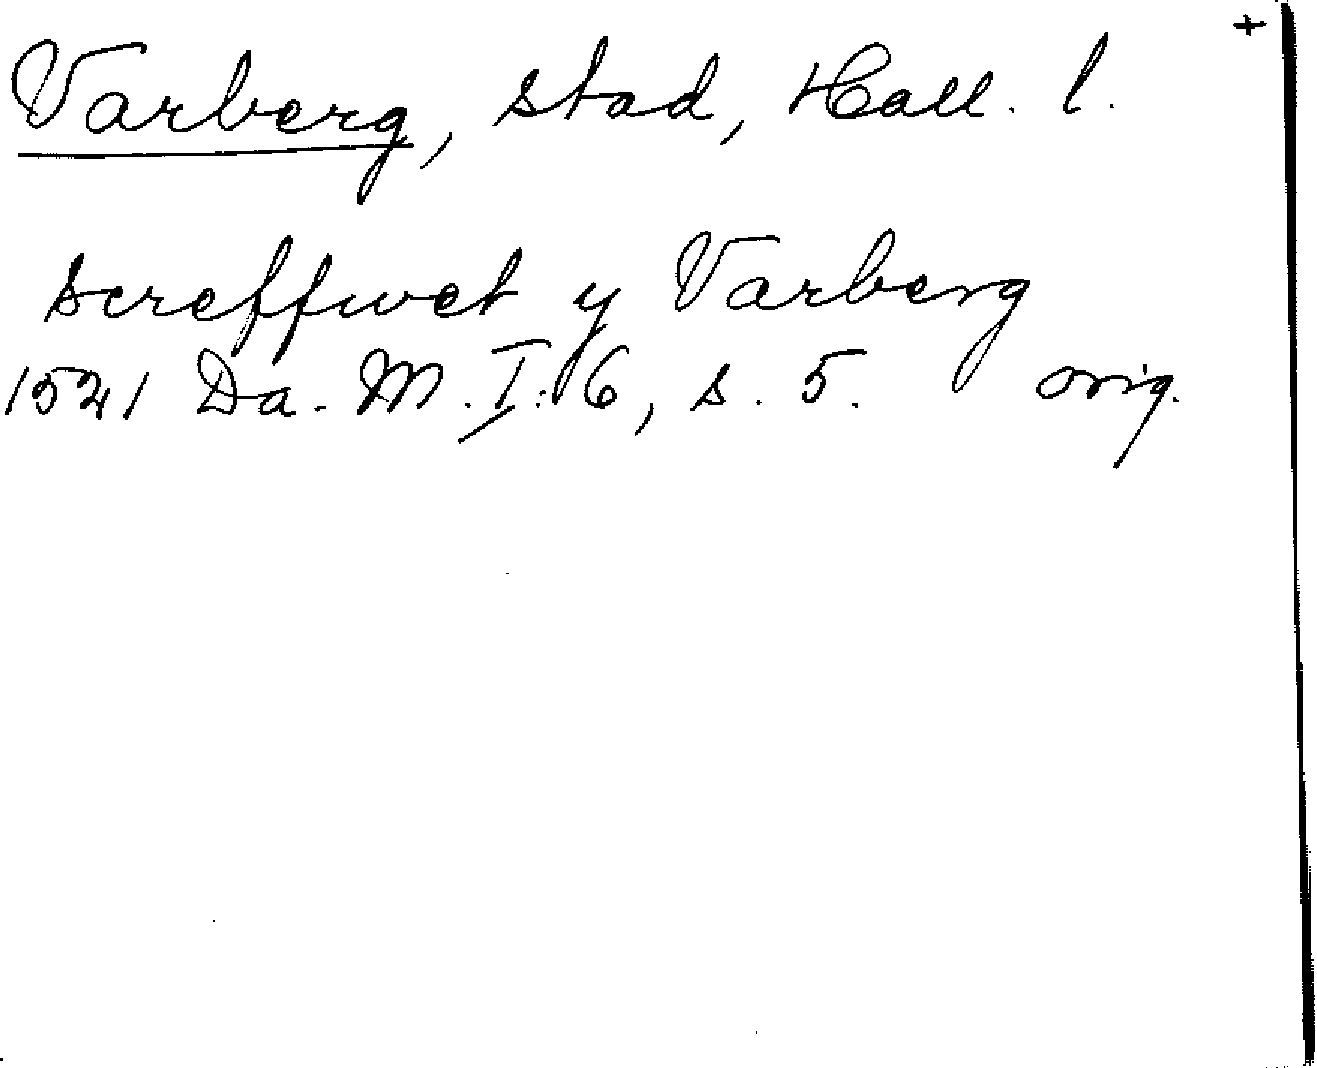 +
Varberg, stad, Hall. l.
screffwet y Varberg
1521 Da. M. I:6, s. 5. orig.